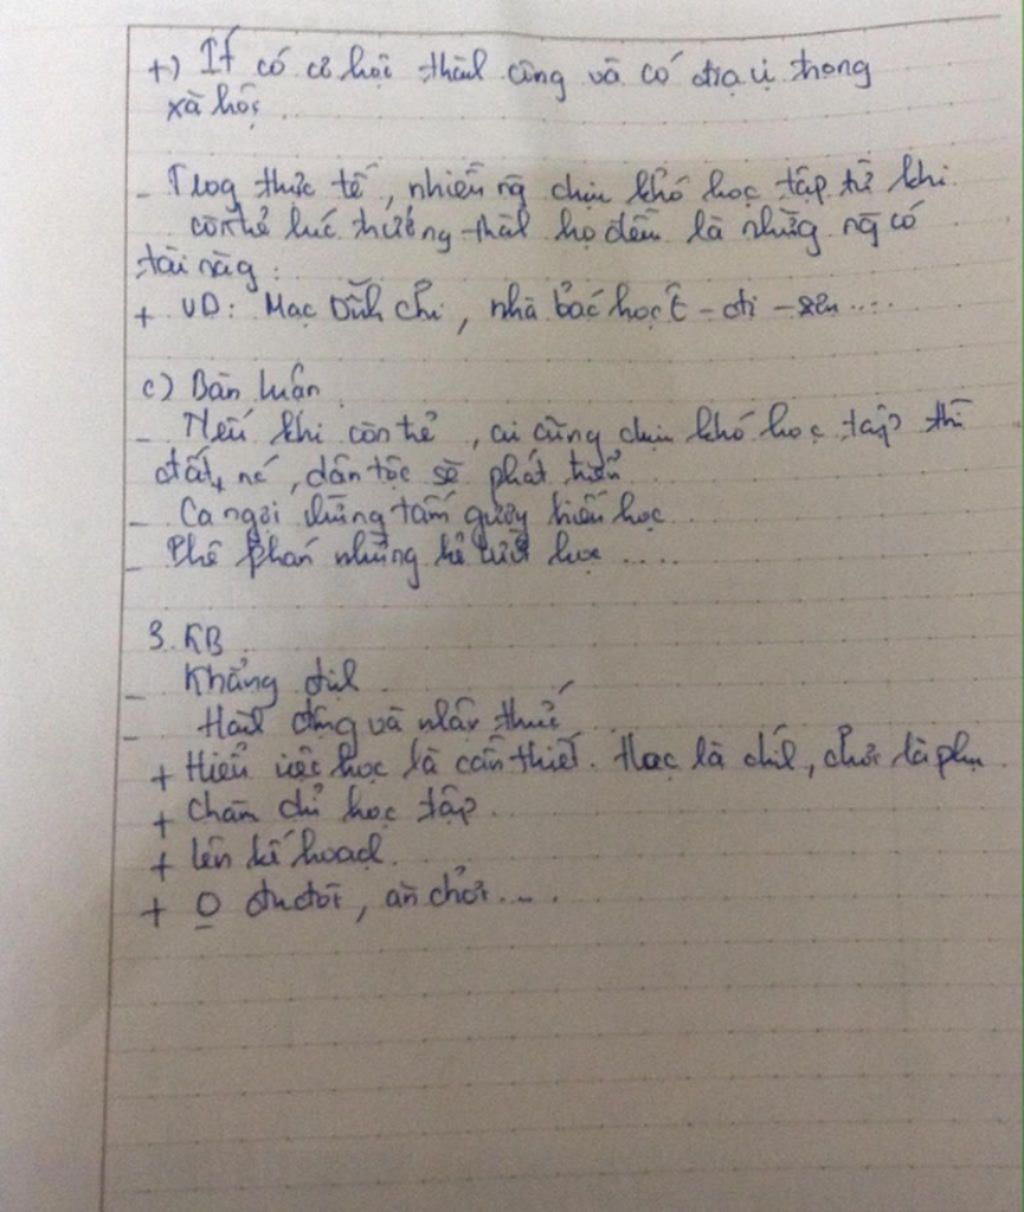 +) Ít có cơ hội thành công và có địa vị trong
xã hội.
- Trog thực tế, nhiều ng chịu khó học tập từ khi
còn trẻ lúc trưởng thành họ đều là những ng có
tài năng :
+ VD: Mạc Đĩnh Chi, nhà bác học Ê - đi - xơn ....
c) Bàn luận
- Nếu khi còn trẻ, ai cũng chịu khó học tập thì
đất nc, dân tộc sẽ phát triển
- Ca ngợi những tấm gương hiếu học
- Phê phán những kẻ lười học .....
3. KB
- Khẳng định
- Hành động và nhận thức
+ Hiểu việc học là cần thiết. Học là chính, chơi là phụ.
+ Chăm chỉ học tập.
+ Lên kế hoạch.
+ O đua đòi, ăn chơi....